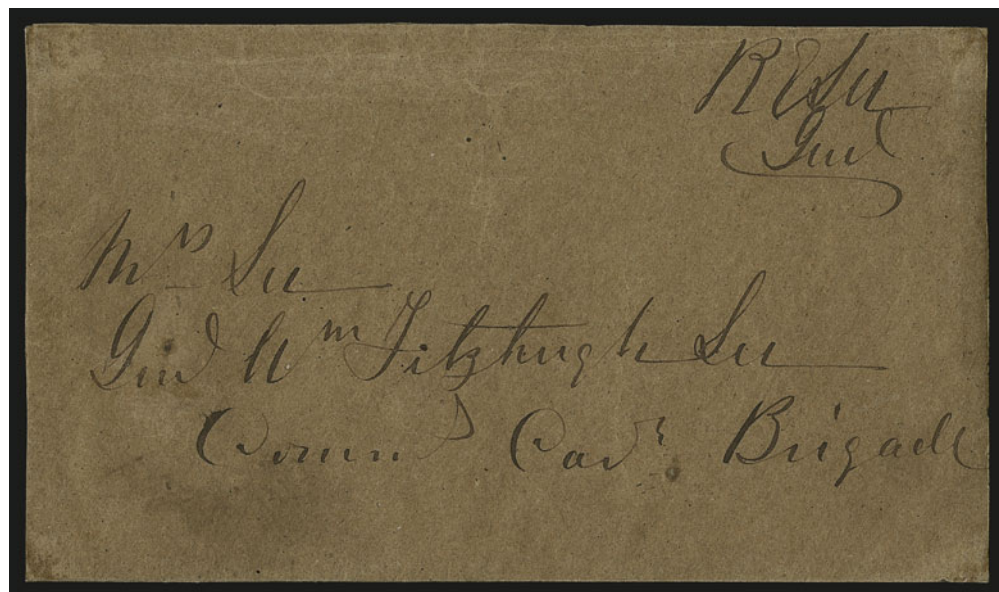 R E Lee
Genl
Mrs Lee
Genl Wm Fitzhugh Lee
Commd Cavy Brigade